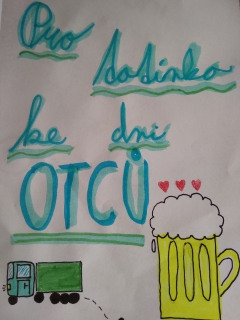 Pro
tatínka
ke dni
OTCŮ